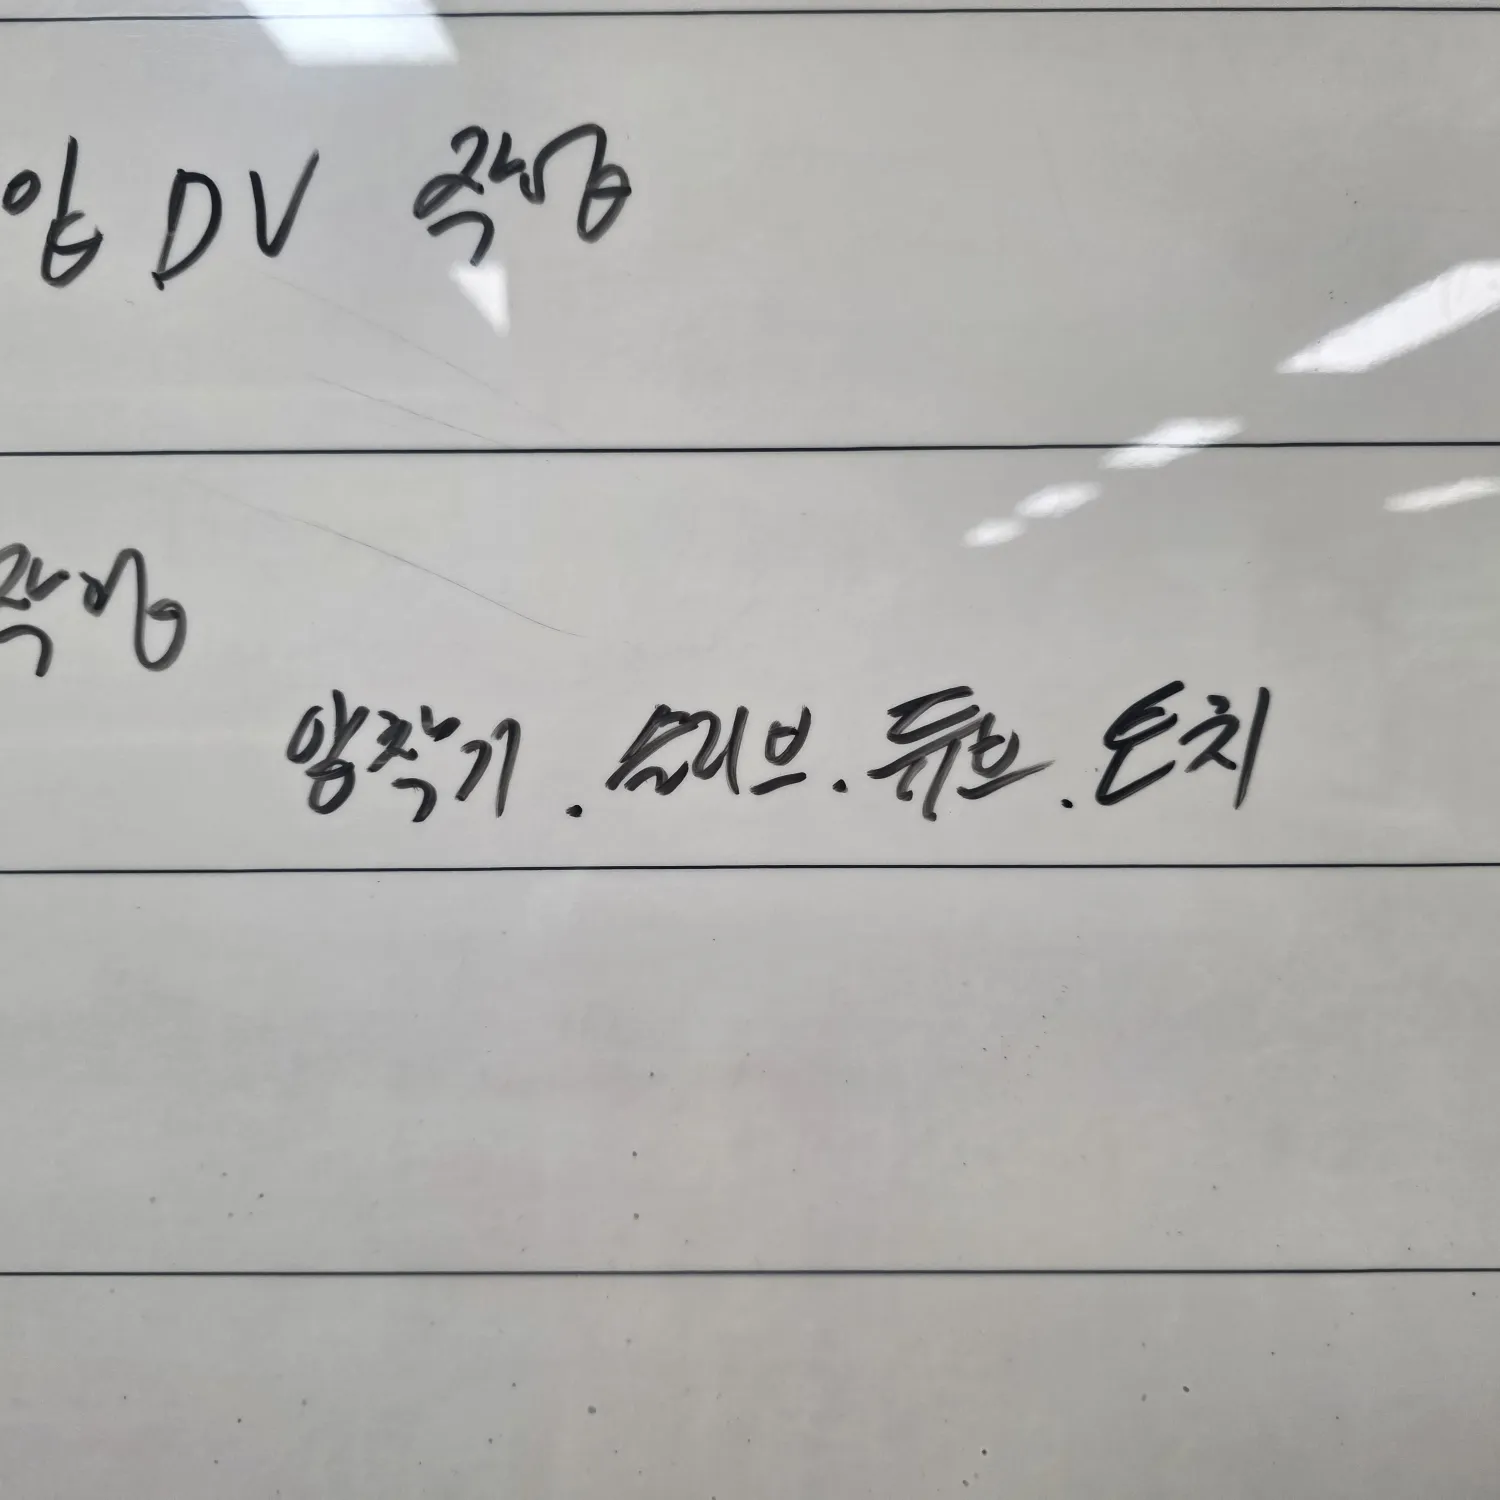 압 DV 작업
작업
압착기 . 슬리브 . 튜브 . 토치